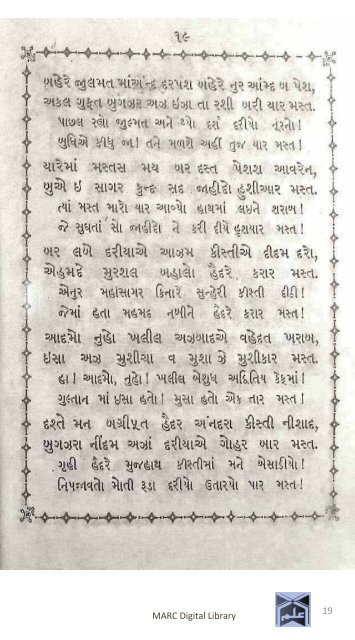 ૧૯
બાહેરે જીલમત માંઅન્દ દરપશ બાહેરે નુર આંમ્દ બ પેશ,
અકલ ગુફ્ત બુગઝર અઝ ઇઝા તા રશી બરી યાર મસ્ત.
પાછલ રહ્યા જીલ્મત અને થ્યો દર્શ દરીયો નૂરનો!
બુધિએ કીધુ જા! તને મળશે અહીં તુજ યાર મસ્ત!
યારેમાં મસ્તસ મય બર દસ્ત પેશશ આવરેન,
બુએ ઈ સાગર કુન્દ સદ જાહીદો હુશીઆર મસ્ત.
ત્યાં મસ્ત મારો યાર આવ્યો હાથમાં લઇને શરાબ!
જે સુંઘતાં સો જાહીદો ને કરી દીયે હુશયાર મસ્ત!
બર લબે દરીયાએ આઝમ કીસ્તીએ દીદમ દરો,
એહમદે મુરશલ બહાલો હૈદરે કરાર મસ્ત.
એનૂર મહાસાગર કિનારે સુન્હેરી કીસ્તી દીઠી!
જેમાં હતા મહમદ નળીને હૈદરે કરાર મસ્ત!
આદમો નુહો ખલીલ અઝબાદએ વહેદત ખરાબ,
ઇસા અઝ મુશીયા વ મુશા ઝે મુશીકાર મસ્ત.
હા! આદમો, નુહો! ખલીલ બેશુધ અદ્વિતિય કેફમાં!
ગુલ્તાન માં ઇસા હતો! મુસા હતો એક તાર મસ્ત!
દસ્તે મન બગ્રીફ્ત હૈદર અંનદરા કીસ્તી નીશાદ,
બુગઝરા નીંદમ અઝાં દરીયાએ ગોહર બાર મસ્ત.
ગૃહી હૈદરે મુજહાથ કીસ્તીમાં મને બેસાડીયો!
નિપજાવતો મોતી રૂડા દરીયો ઉતારયો પાર મસ્ત!
MARC Digital Library
علم
19